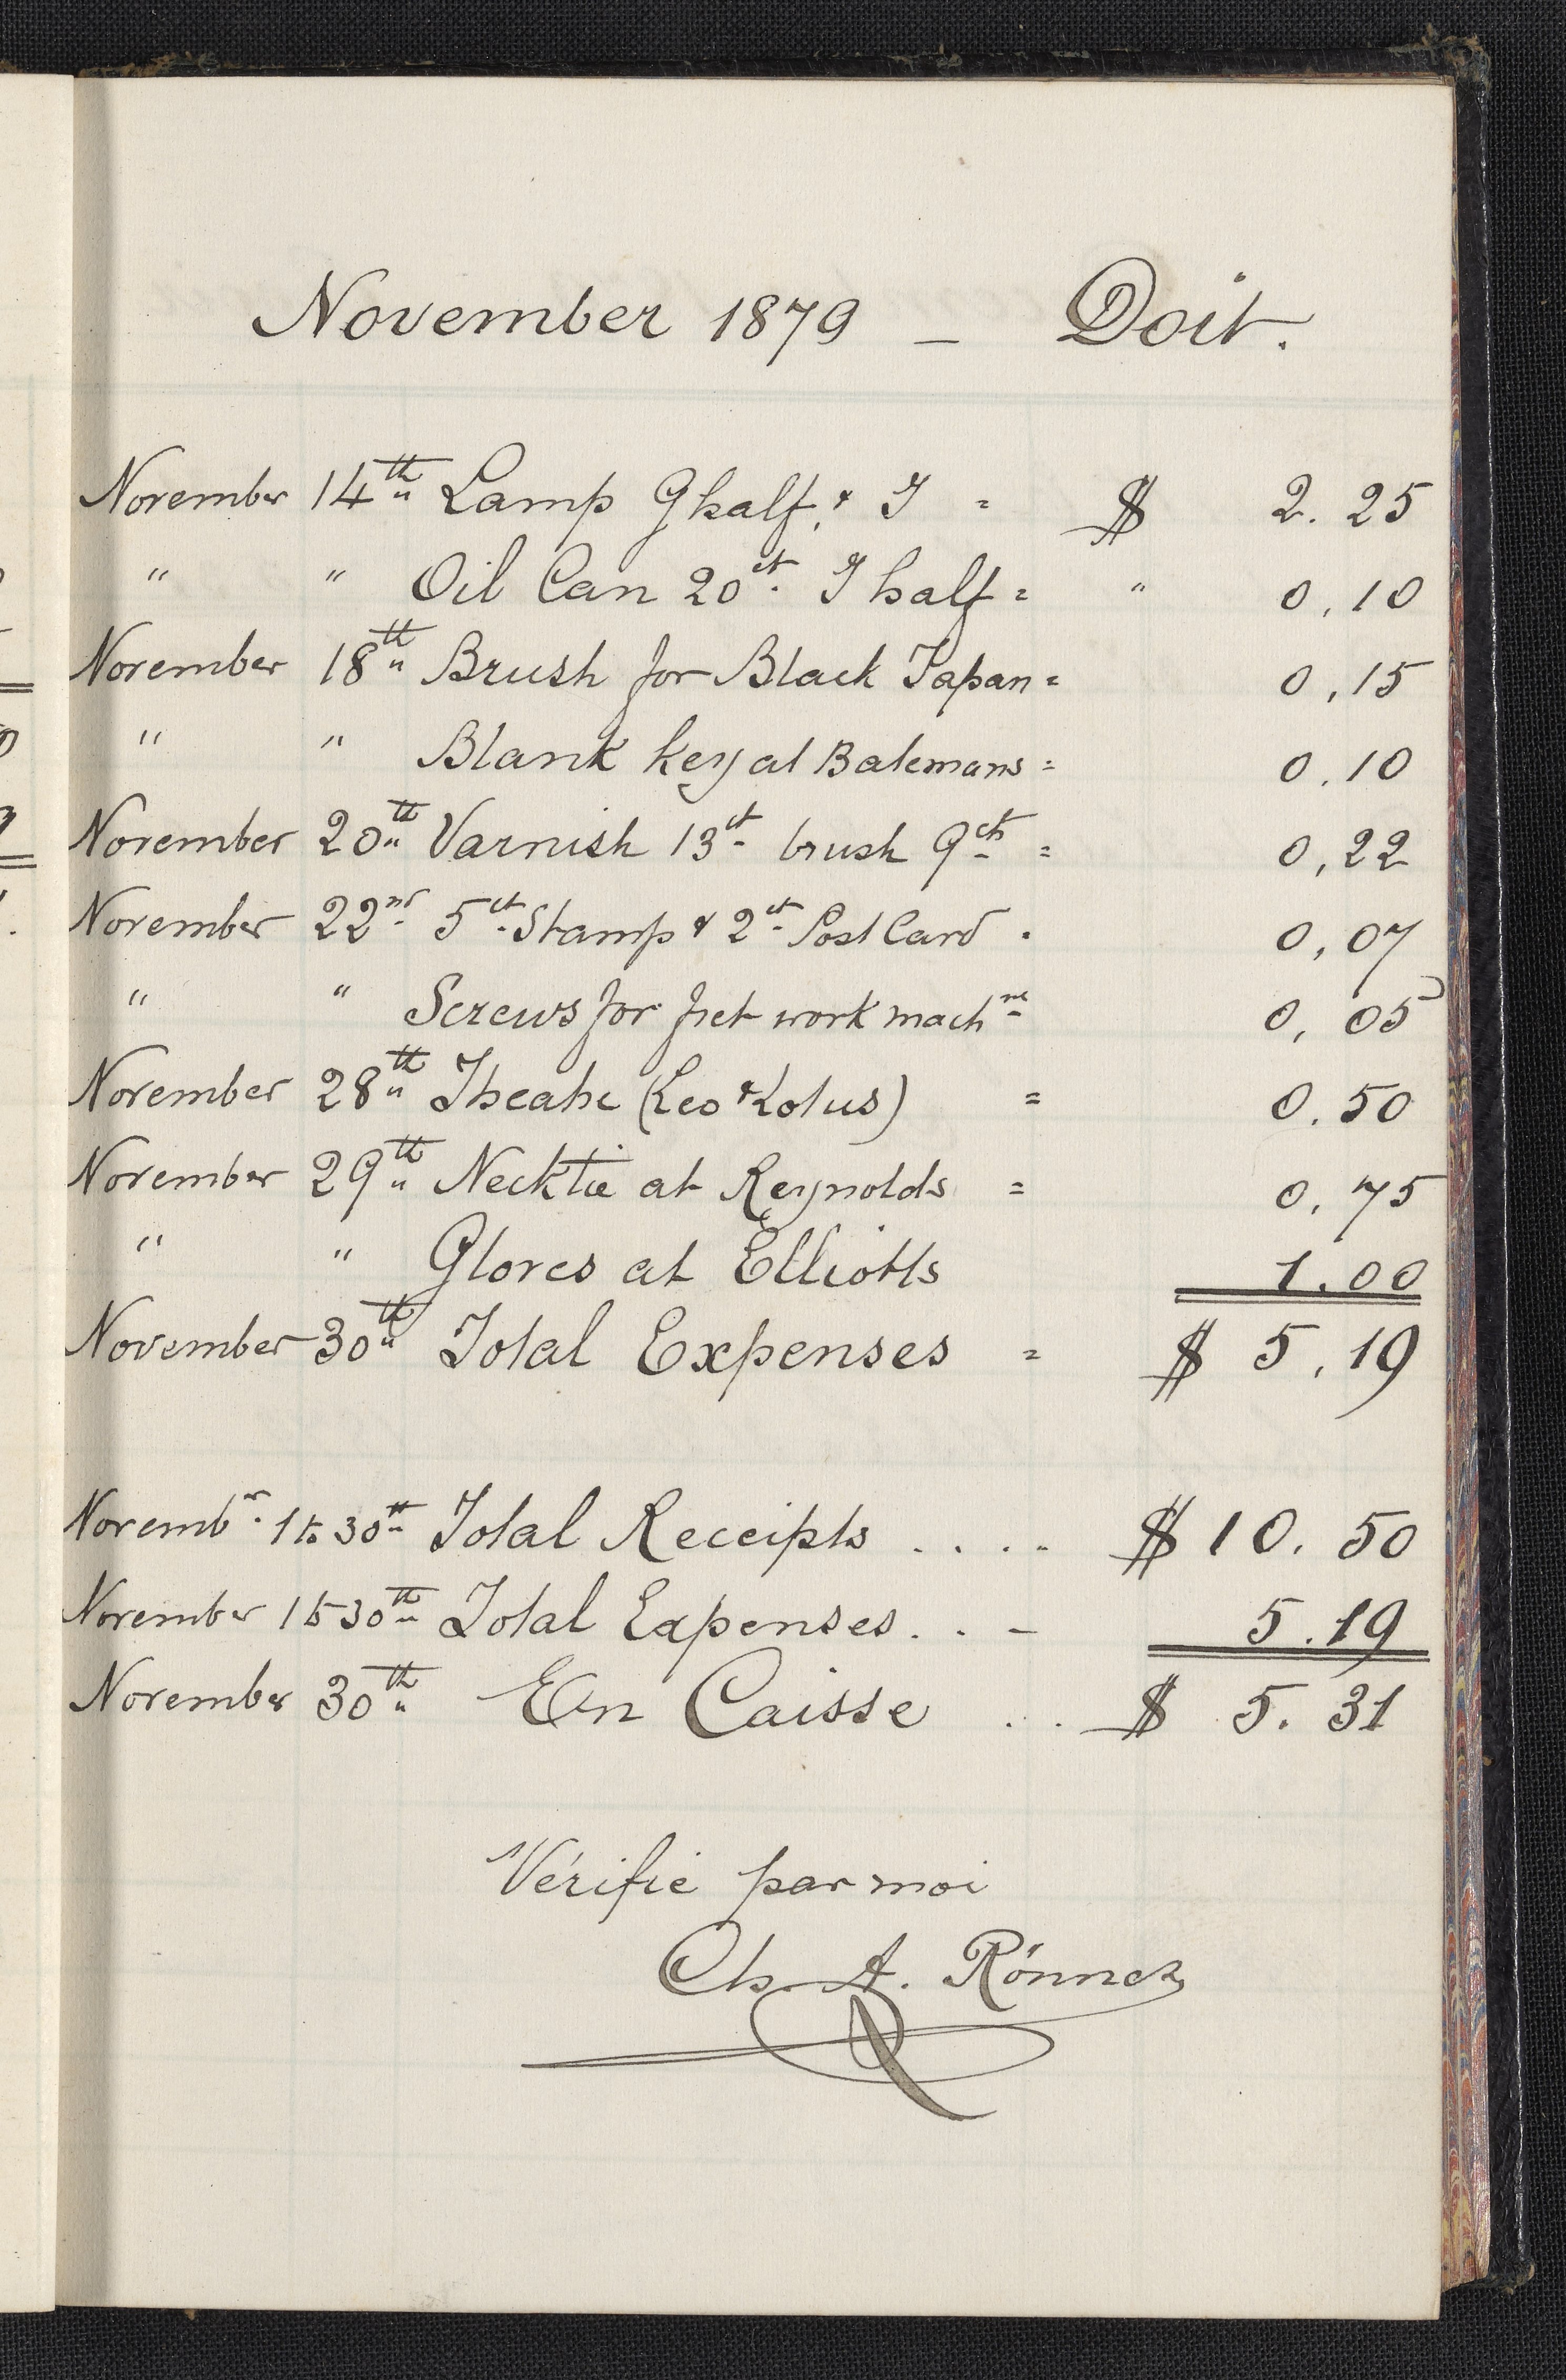 November 1879 — Doit.
November 14th Lamp G half, & I = $ 2.25
" " Oil Can 20ct. I half = " 0,10
November 18th Brush for Black Japan = 0,15
" " Blank key at Batemans = 0.10
November 20th Varnish 13ct brush 9cts = 0,22
November 22nd 5ct Stamp & 2ct Post Card . 0,07
" " Screws for fret work machne 0,05
November 28th Theatre (Leo & Lotus) = 0.50
November 29th Necktie at Reynolds = 0,75
" " Gloves at Elliotts 1.00
November 30th Total Expenses = $ 5,19
Novembr. 1 to 30th Total Receipts .... $ 10.50
November 1 to 30th Total Expenses. . - 5.19
November 30th En Caisse .. $ 5.31
Vérifié par moi
Ch. A. Rönnez